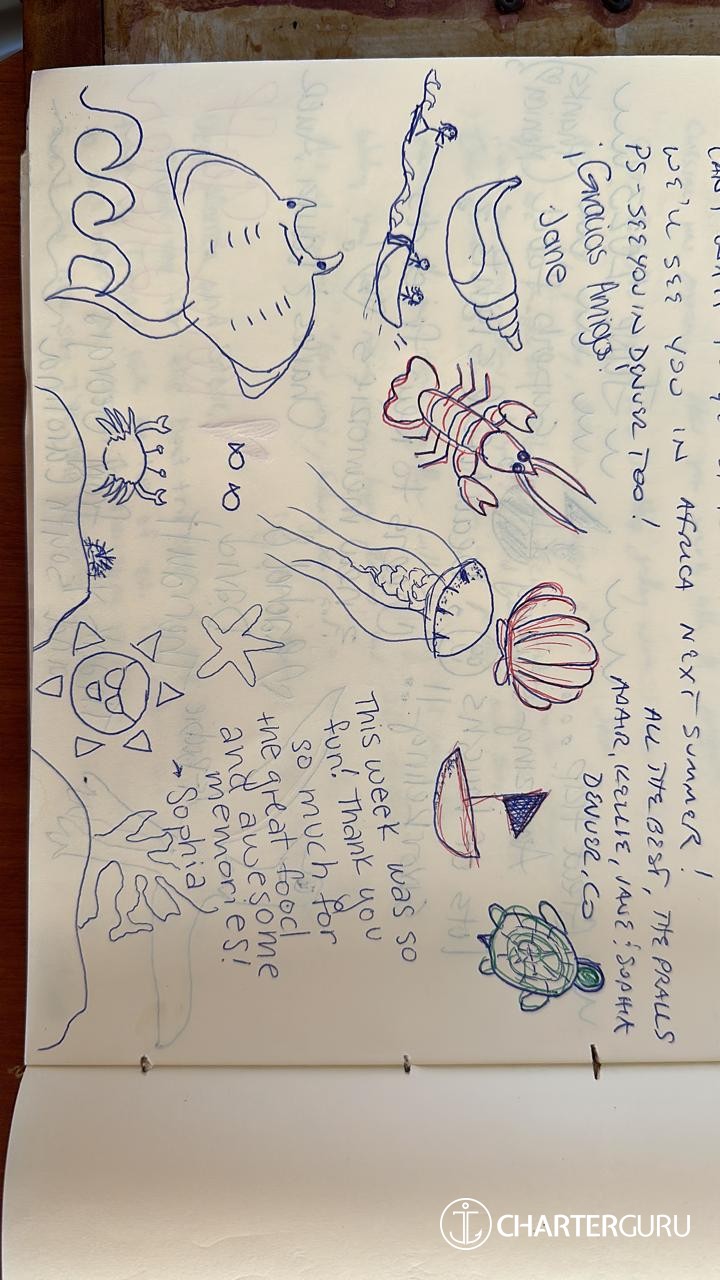 WE'LL SEE YOU IN AFRICA NEXT SUMMER!
PS - SEE YOU IN DENVER TOO!
ALL THE BEST, THE PRALLS
ADAIR, KELLIE, JANE & SOPHIA
DENVER, CO
¡Gracias Amigo!
Jane
This week was so
fun! Thank you
so much for
the great food
and awesome
memories!
Sophia
CHARTERGURU